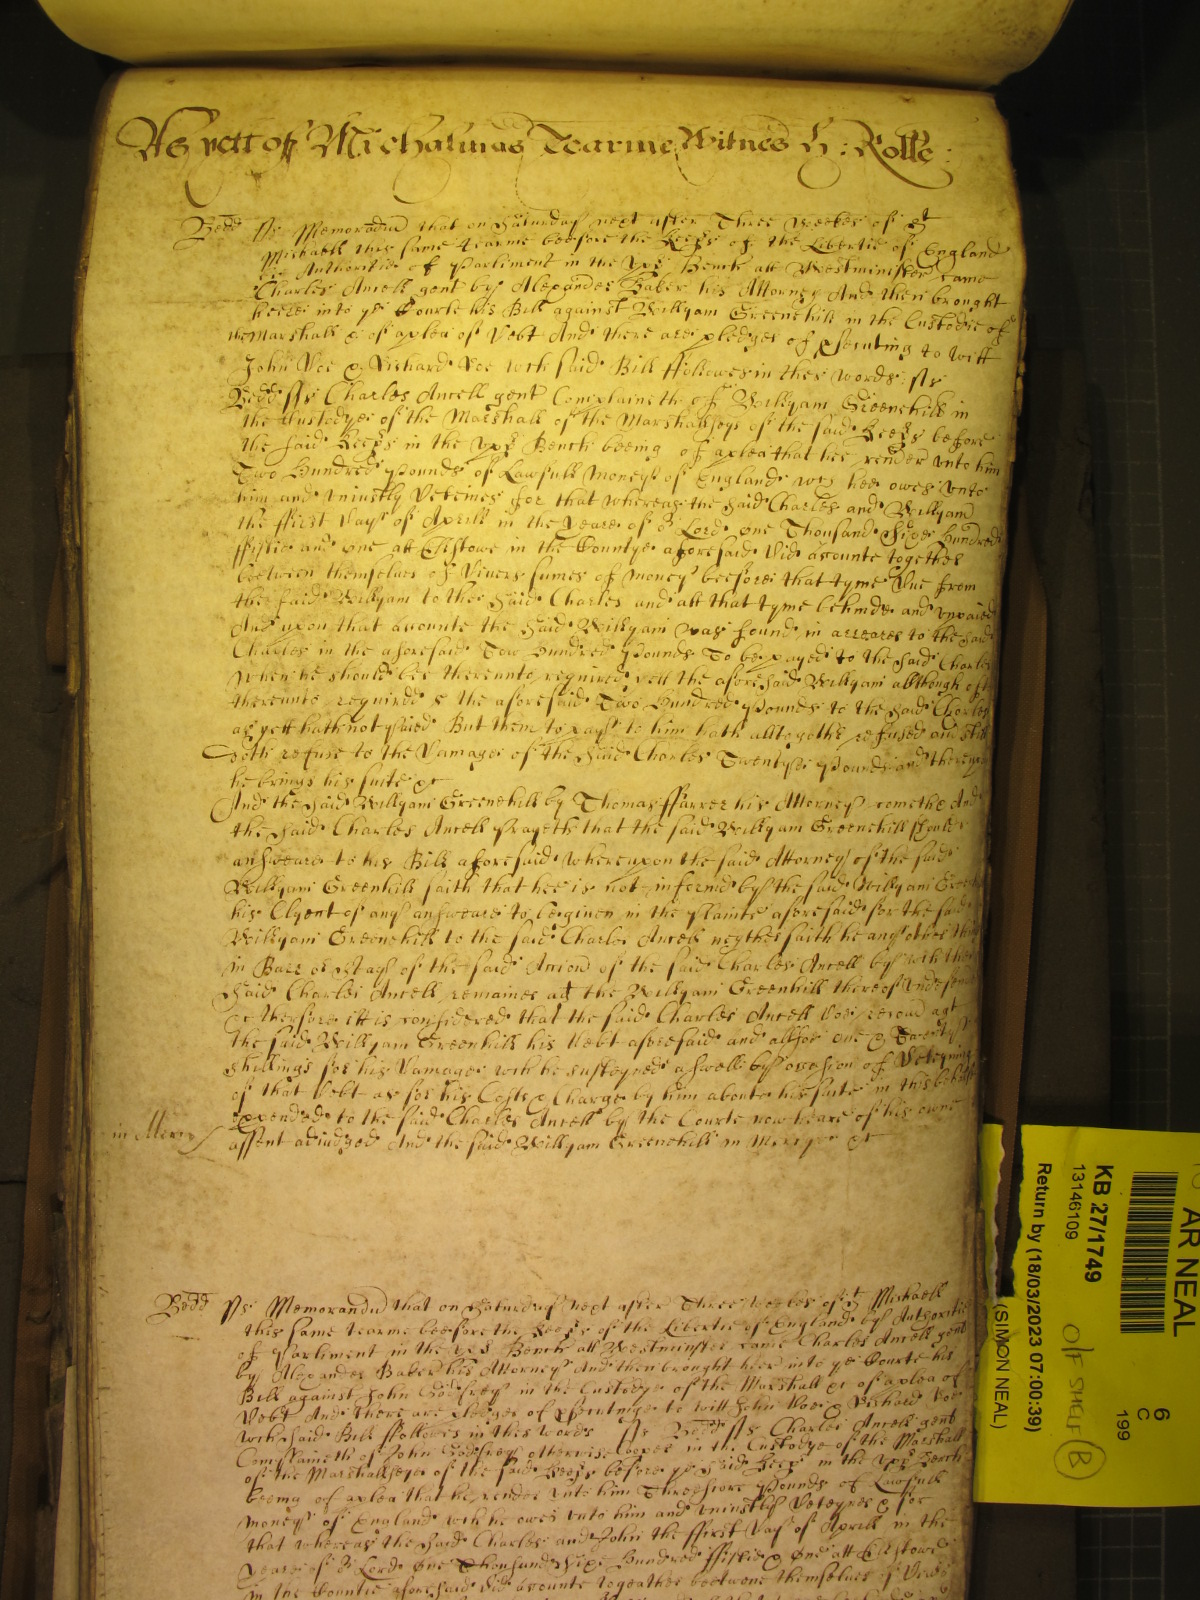 As yett of Michalmas Tearme Witnes H: Rolle:
Bedd ss Memorandud that on Saturday next after Three Weekes of St
Michaell this same tearme beefore the Keeps of the Libertie of England
by Authoritie of Parliment in the upp Bench att Westminster came
Charles Ancell gent by Alexander Baker his Attorney And then brought
heere into ye Courte his Bill against Willyam Greenehill in the Custodie of
the Marshall &c of a plea of Debt And there are pledges of psecuting to witt
John Doe & Richard Roe wch said Bill ffollowes in thes words: ss
Bedd ss Charles Ancell gent Complaineth of Willyam Greenehill in
the Custodye of the Marshall of the Marshallseys of the said Keeps before
the said Keeps in the upp Bench beeing of a plea that hee render unto him
Two Hundred Pounds of Lawfull money of England wch hee owes unto
him and uniustly Deteines for that whereas the said Charles and Willyam
the ffirst Day of Aprill in the yeare of or Lord one Thousand Sixe Hundred
ffiftie and one att Elstowe in the Countye aforesaid did accounte together
between themselves of Divers sumes of money beefore that tyme Due from
the said Willyam to the said Charles and att that tyme behinde and unpaied
And upon that accounte the said Willyam was found in arreares to the said
Charles in the aforesaid Two Hundred Pounds To be payed to the said Charles
when he should bee thereunto required yett the aforesaid Willyam allthough oft
thereunto required & the aforesaid Two Hundred Pounds to the said Charles
as yett hath not paied But them to pay to him hath alltogether refused and still
doth refuse to the Damages of the said Charles Twentye Pounds and thereupon
he brings his suite &c
And the said Willyam Greenehill by Thomas ffarrer his Attorney cometh & And
the said Charles Ancell Prayeth that the said Willyam Greenehill should
answeare to his Bill aforesaid whereupon the said Attorney of the said
Willyam Greenhill saith that hee is not informd by the said Willyam Greenehill
his Clyent of any answeare to be given in the plainte aforesaid for the said
Willyam Greenehill to the said Charles Ancell neyther saith he any other thing
in Barr or Stay of the said Accion of the said Charles Ancell by wch the
said Charles Ancell remaines agt the Willyam Greenhill thereof undefended
&c therfore itt is considered that the said Charles Ancell Doe recover agt
the said Willyam Greenhill his Debt aforesaid and allsoe one & Twenty
shillings for his Damages wch he susteyned aswell by occasion of Deteyning
of that Debt as for his Costs & Charges by him aboute his suite in this behalf
expended to the said Charles Ancell by the Courte now heare of his owne
in Mercy
assent adiudged And the said Willyam Greenehill in Mercy &c
Bedd ss Memorandud that on Saturday next after Three Weekes of St Michaell
this same tearme beefore the Keeps of the Libertie of England by Authoritie
of Parliment in the upp Bench att Westminster came Charles Ancell gent
by Alexander Baker his Attorney And then brought heer into ye Courte his
Bill against John Godfrey in the Custodye of the Marshall &c of a plea of
Debt And there are pledges of psecutinge to witt John Doe & Richard Roe
wch said Bill ffollowes in this words ss Bedd ss Charles Ancell gent
Complaineth of John Godfrey otherwise Cooper in the Custodye of the Marshall
of the Marshallseye of the said Keeps before ye said Keeps in the upp Bench
beeing of a plea that he render unto him Threescore Pounds of Lawfull
money of England wch he owes unto him and uniustly Deteynes & for
that whereas the said Charles and John the ffirst Day of Aprill in the
yeare of or Lord One Thousand Sixe Hundred ffiftie & One att Elstowe
in the Countie aforesaid did accounte togeather beetwene themselves of Divers
AR NEAL
6
C
199
KB 27/1749
13146109
Return by (18/03/2023 07:00:39)
(SIMON NEAL)
O/F SHELF
B